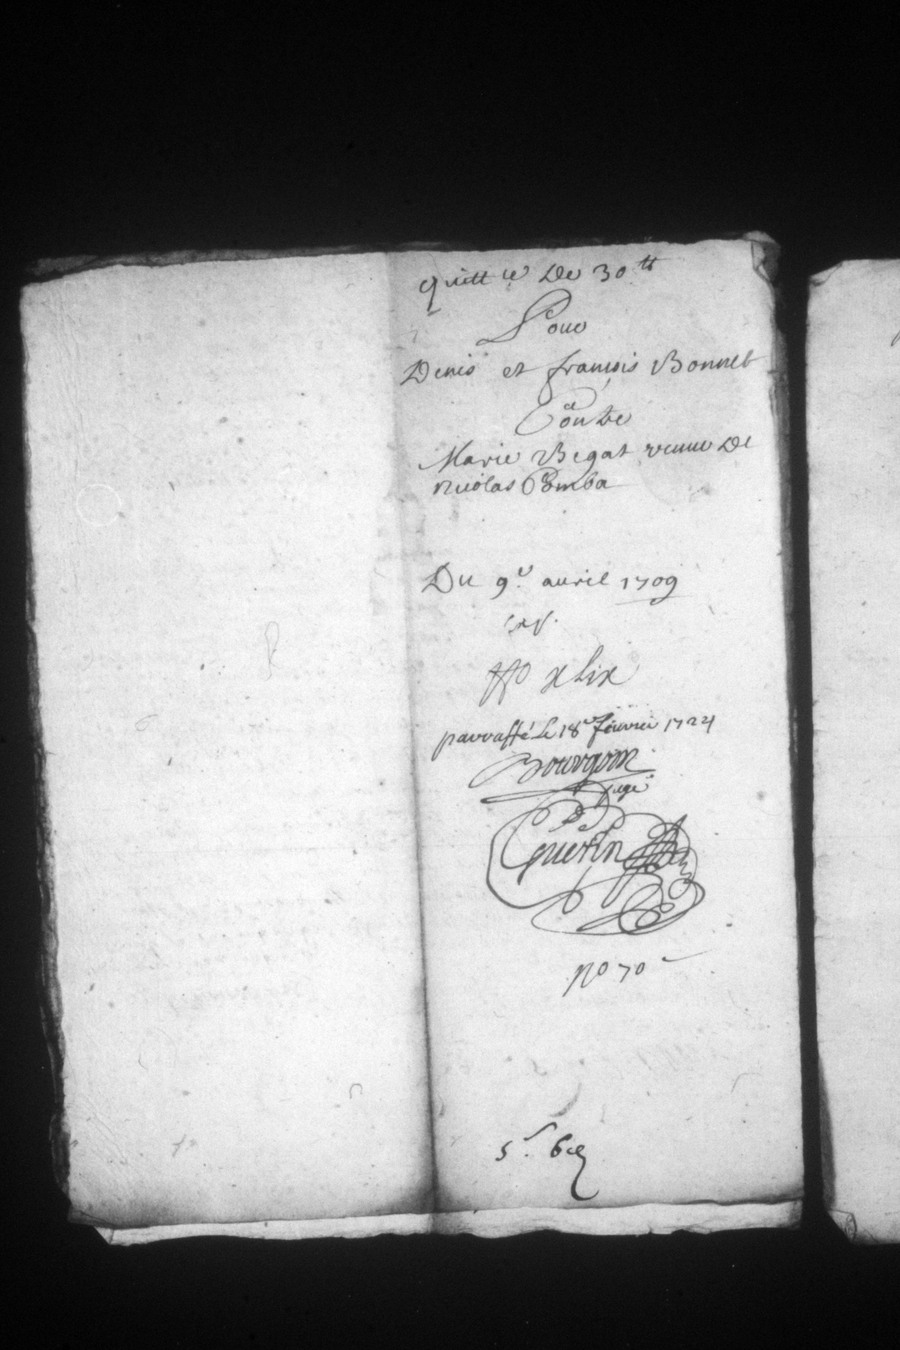 quitt ce De 30 tt
Pour
Denis et françois Bonnet
Contre
Marie Begat veuue De
nicolas Comba
Du 9e auril 1709
No xlix
parraffé le 18e feurier 1724
Bourgoin
juge
Guerin
no 70
5s 6d